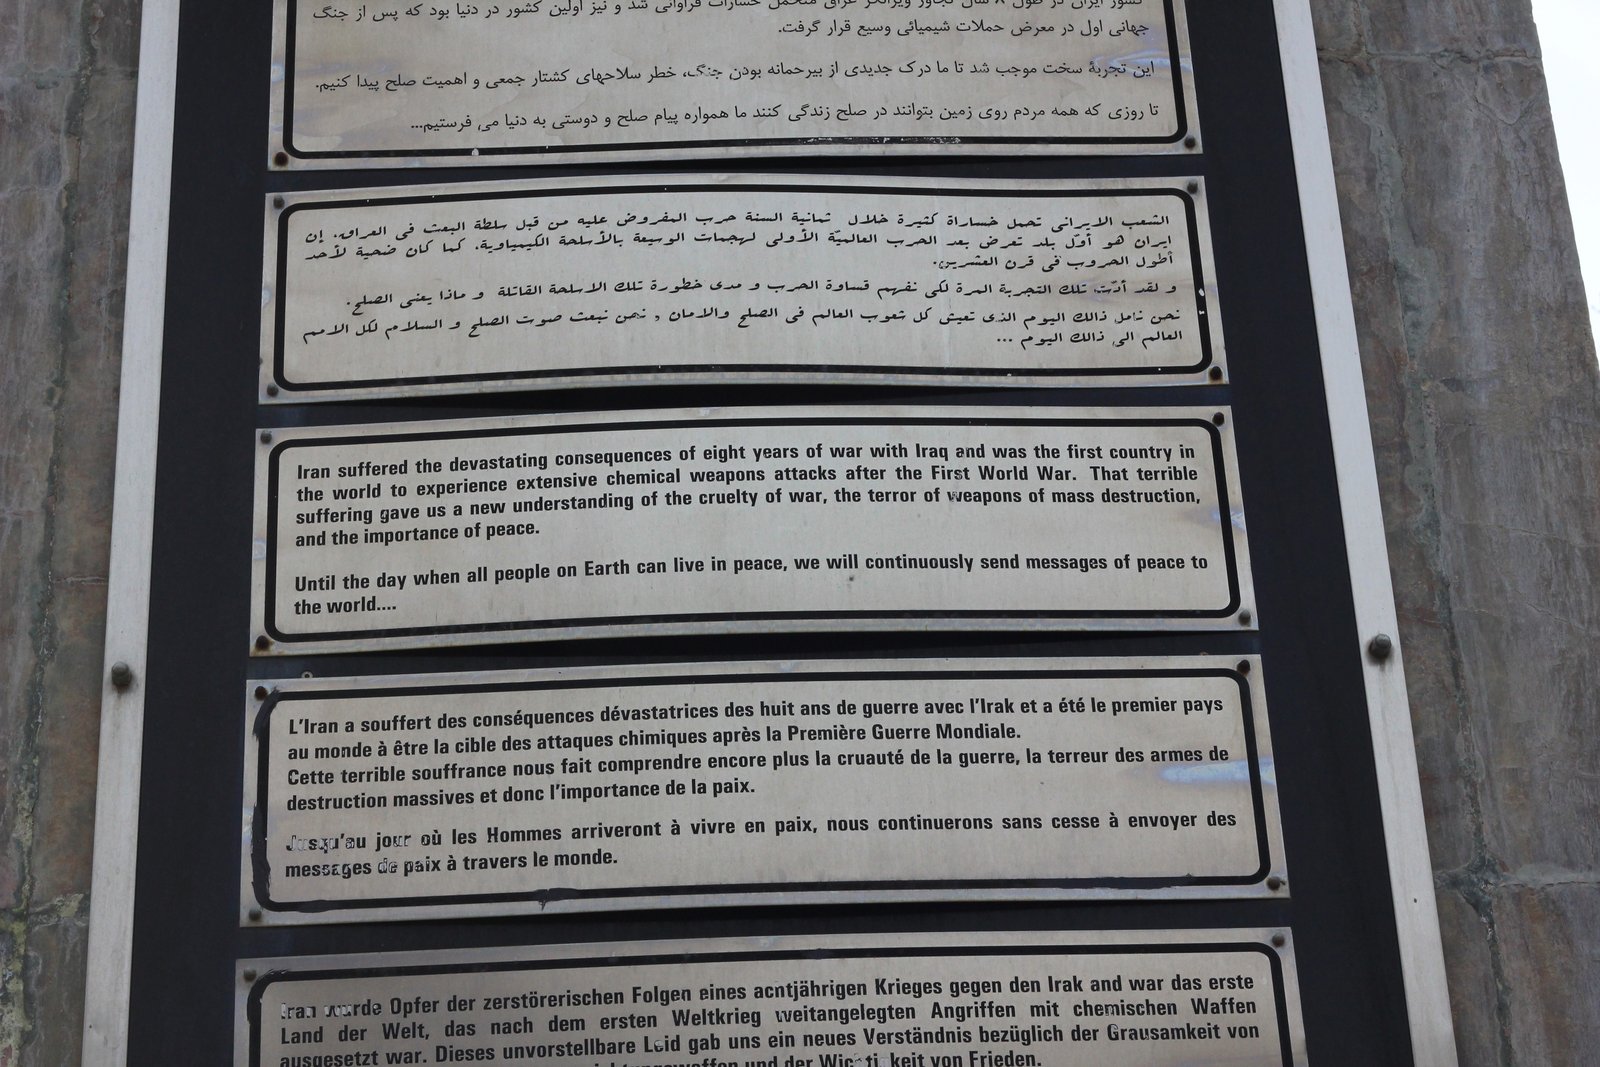 کشور ایران در طول ۸ سال تجاوز ویرانگر عراق متحمل خسارات فراوانی شد و نیز اولین کشور در دنیا بود که پس از جنگ
جهانی اول در معرض حملات شیمیائی وسیع قرار گرفت.
این تجربهٔ سخت موجب شد تا ما درک جدیدی از بیرحمانه بودن جنگ، خطر سلاحهای کشتار جمعی و اهمیت صلح پیدا کنیم.
تا روزی که همه مردم روی زمین بتوانند در صلح زندگی کنند ما همواره پیام صلح و دوستی به دنیا می فرستیم...
الشعب الایرانی تحمل خساراة کثیرة خلال ثمانیة السنة حرب المفروض علیه من قبل سلطة البعث فی العراق. إن
ایران هو أوّل بلد تعرض بعد الحرب العالمیّة الأولی لهجمات الوسیعة بالأسلحة الکیمیاویة. کما کان ضحیة لأحد
أطول الحروب فی قرن العشرین.
و لقد أدّت تلك التجربة المرة لکی نفهم قساوة الحرب و مدی خطورة تلك الاسلحة القاتلة و ماذا یعنی الصلح.
نحن نامل ذالك الیوم الذی تعیش کل شعوب العالم فی الصلح والامان , نحن نبعث صوت الصلح و السلام لکل الامم
العالم الی ذالك الیوم ...
Iran suffered the devastating consequences of eight years of war with Iraq and was the first country in
the world to experience extensive chemical weapons attacks after the First World War. That terrible
suffering gave us a new understanding of the cruelty of war, the terror of weapons of mass destruction,
and the importance of peace.
Until the day when all people on Earth can live in peace, we will continuously send messages of peace to
the world....
L'Iran a souffert des conséquences dévastatrices des huit ans de guerre avec l'Irak et a été le premier pays
au monde à être la cible des attaques chimiques après la Première Guerre Mondiale.
Cette terrible souffrance nous fait comprendre encore plus la cruauté de la guerre, la terreur des armes de
destruction massives et donc l'importance de la paix.
Jusqu'au jour où les Hommes arriveront à vivre en paix, nous continuerons sans cesse à envoyer des
messages de paix à travers le monde.
Iran wurde Opfer der zerstörerischen Folgen eines achtjährigen Krieges gegen den Irak and war das erste
Land der Welt, das nach dem ersten Weltkrieg weitangelegten Angriffen mit chemischen Waffen
ausgesetzt war. Dieses unvorstellbare Leid gab uns ein neues Verständnis bezüglich der Grausamkeit von
und der Wichtigkeit von Frieden.